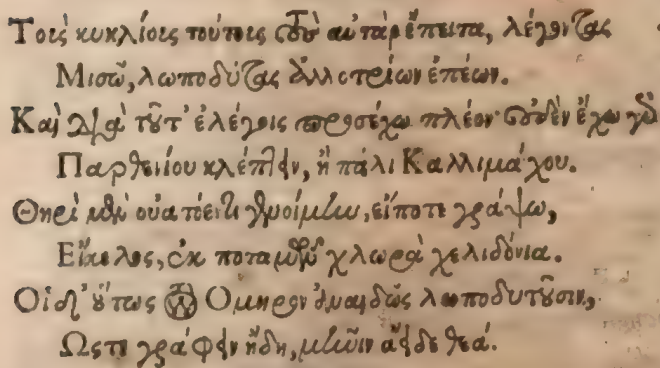 Τοις κυκλίοις τούτοις τοὺς αὐτὰρ ἔπειτα, λέγοντας
Μισῶ, λωποδύτας ἀλλοτρίων ἐπέων.
Καὶ διὰ τοῦτ' ἐλέγοις προσέχω πλέον· οὐδὲν ἔχω γὰρ
Παρθενίου κλέπτειν, ἢ πάλι Καλλιμάχου.
Θηρὶ μὲν οὐατόεντι γενοίμην, εἴποτε γράψω,
Εἴκελος, ἐκ ποταμῶν χλωρὰ χελιδόνια.
Οἱ δ' οὕτως τὸν Ὅμηρον ἀναιδῶς λωποδυτοῦσιν,
Ὥςτε γράφειν ἤδη, μῆνιν ἄειδε θεά.